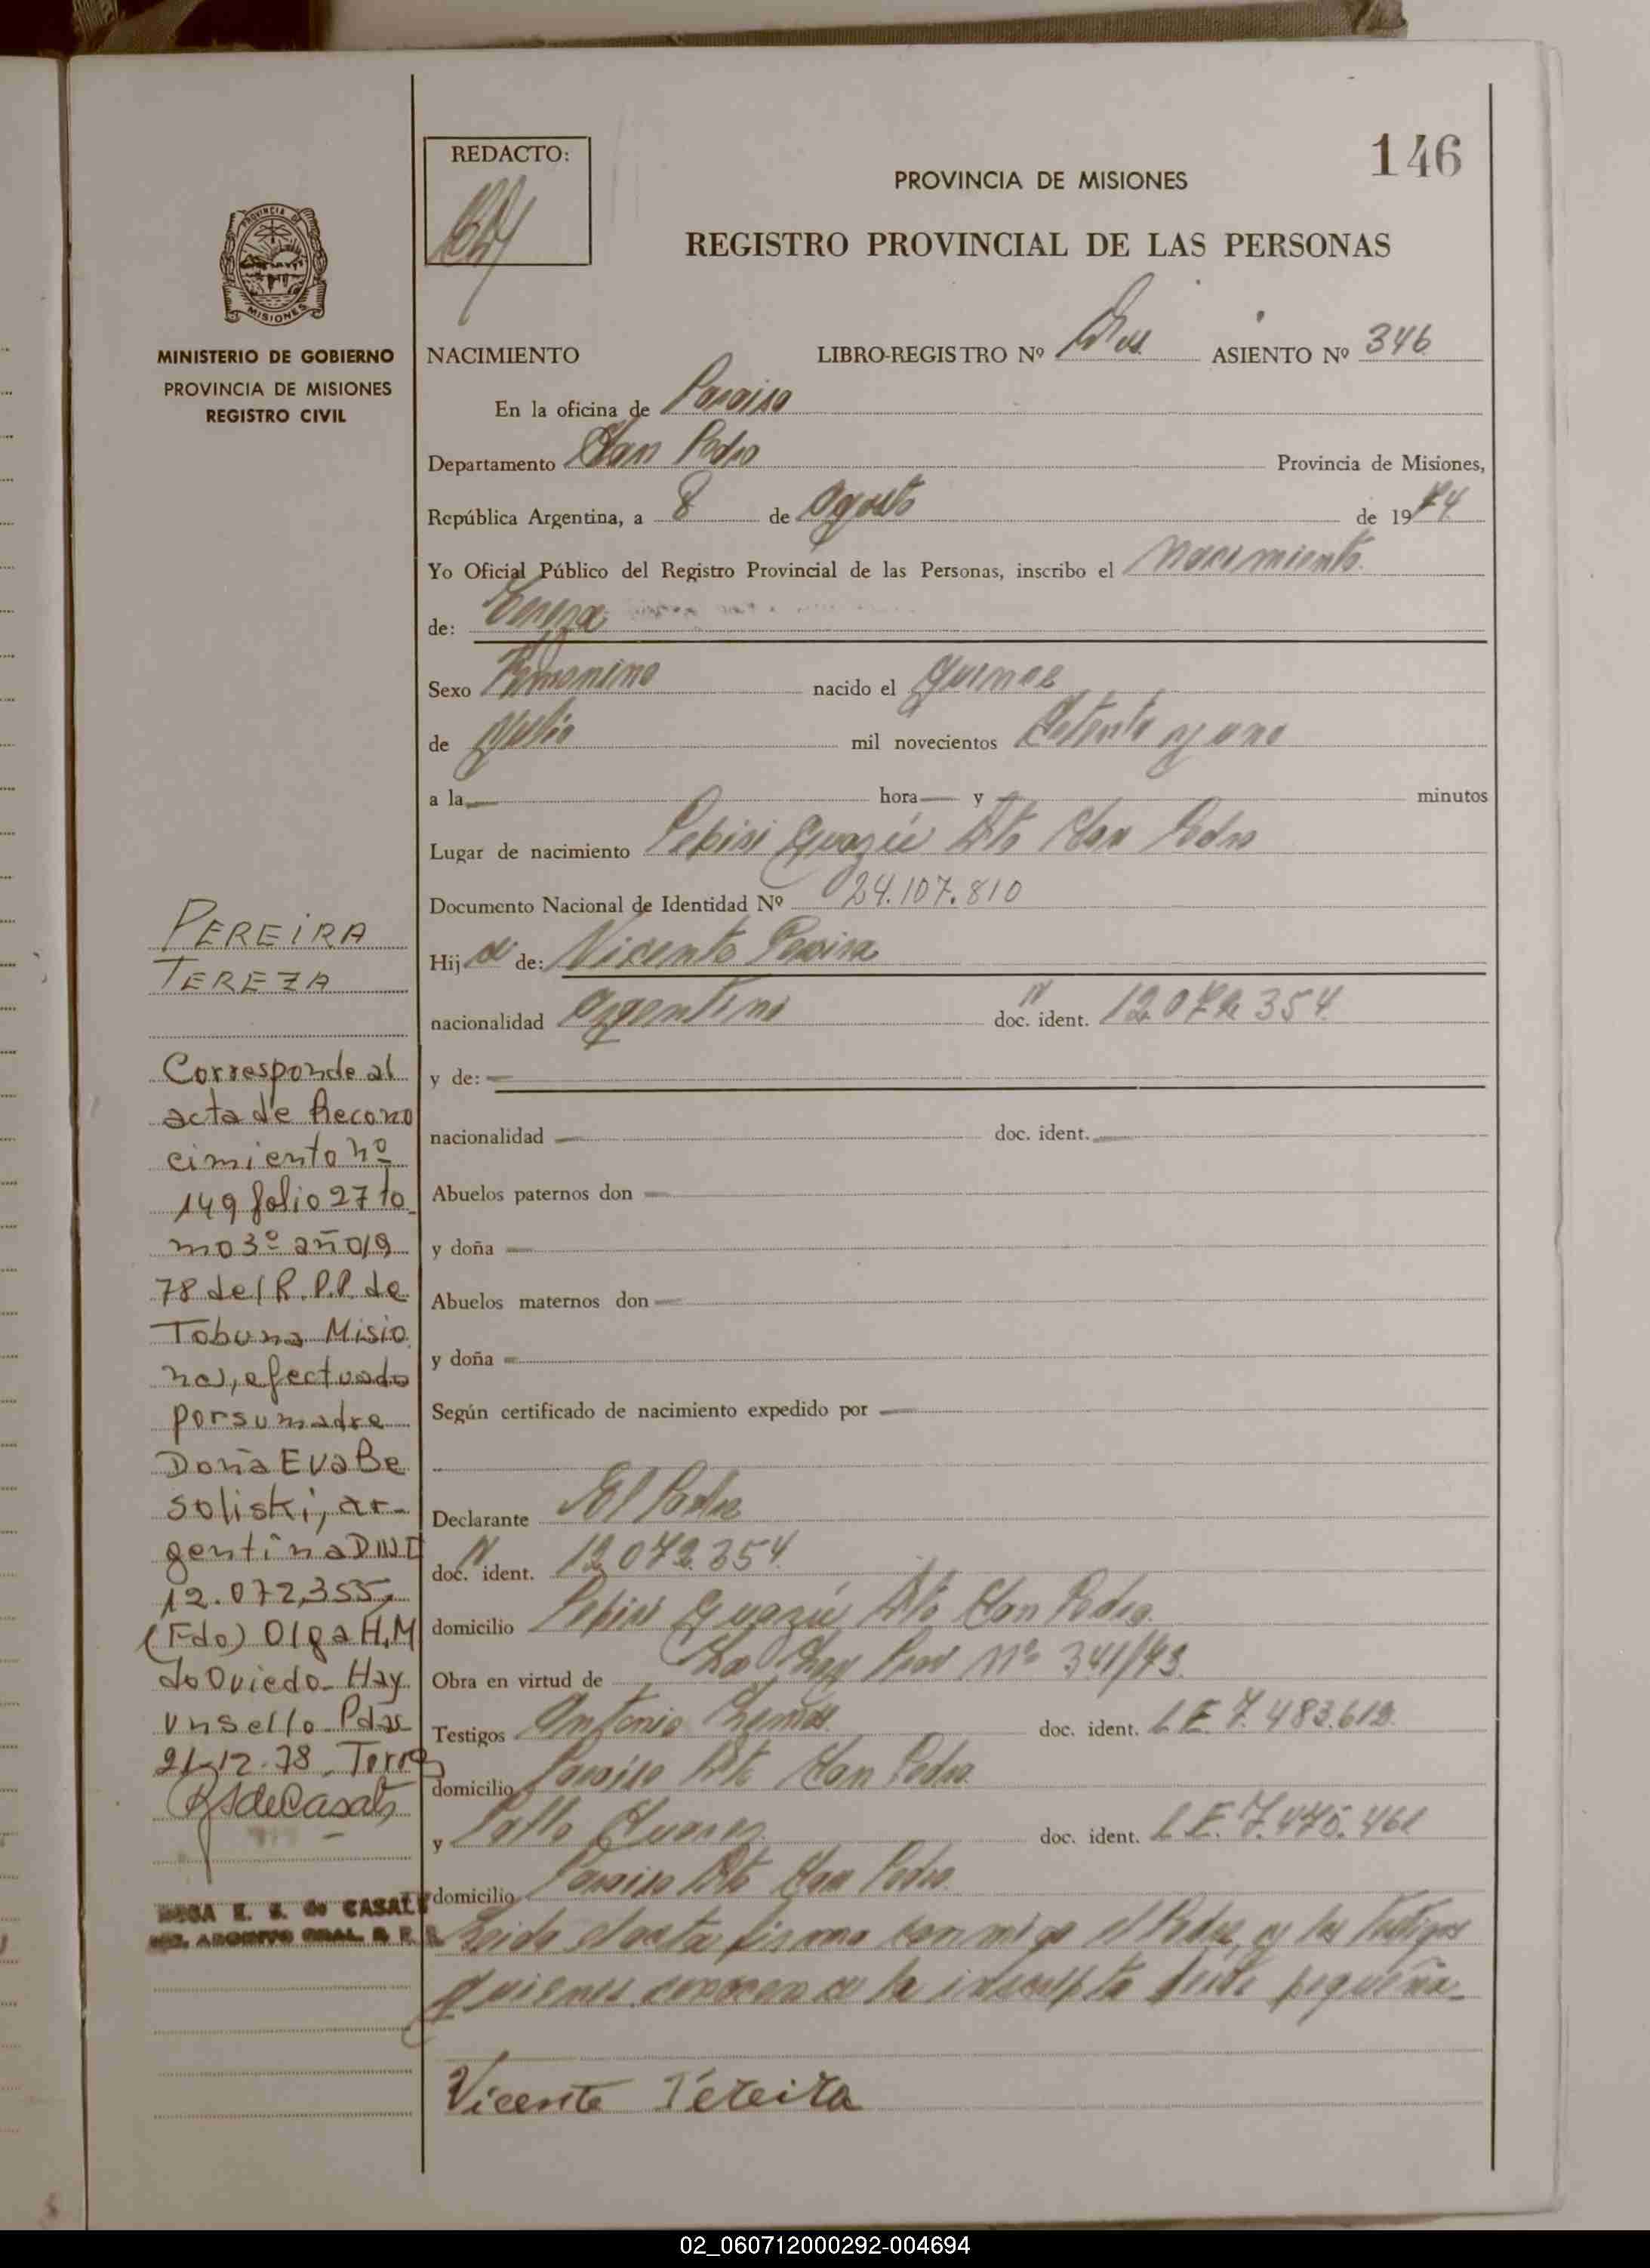 146
REDACTO:
PROVINCIA DE MISIONES
REGISTRO PROVINCIAL DE LAS PERSONAS
PROVINCIA DE
MISIONES
MINISTERIO DE GOBIERNO
PROVINCIA DE MISIONES
REGISTRO CIVIL
NACIMIENTO LIBRO-REGISTRO Nº Dos ASIENTO Nº 346
En la oficina de Paraiso
Departamento San Pedro Provincia de Misiones,
República Argentina, a 8 de Agosto de 1974
Yo Oficial Público del Registro Provincial de las Personas, inscribo el Nacimiento
de: Tereza
Sexo Femenino nacido el Quince
de Julio mil novecientos Setenta y uno
a la hora y minutos
Lugar de nacimiento Pepiri Guazú Dto San Pedro
Documento Nacional de Identidad Nº 24.107.810
Hij a de: Vicente Pereira
nacionalidad Argentino doc. ident. 12.072.354
y de:
nacionalidad doc. ident.
Abuelos paternos don
y doña
Abuelos maternos don
y doña
Según certificado de nacimiento expedido por
Declarante El Padre
doc. ident. 12.072.354
domicilio Pepiri Guazú Dto San Pedro
Obra en virtud de La Ley Prov Nº 341/73.
Testigos Antonio doc. ident. L.E. 7.483.612.
domicilio Paraiso Dto San Pedro
y doc. ident. L.E. 7.475.461
domicilio Paraiso Dto San Pedro
Leida el acta firma conmigo el Padre y los Testigos
quienes conocen a la inscripta desde pequeña.
Vicente Pereira
PEREIRA
TEREZA
Corresponde al
acta de Recono
cimiento nº
149 folio 27 to
mo 3º año 19
78 del R.P.P. de
Tobuna Misio
nes, efectuado
por su madre
Doña Eva Be
soliski, ar-
gentina DNI
12.072.355,
(Fdo) Olga H.M
de Oviedo. Hay
un sello Pdas
21-12-78.
RSdeCasals
ROSA E. S. de CASALS
ARCHIVO GRAL. R. P. P.
02_060712000292-004694